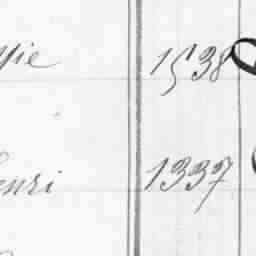 ssie 1538
enri 1337